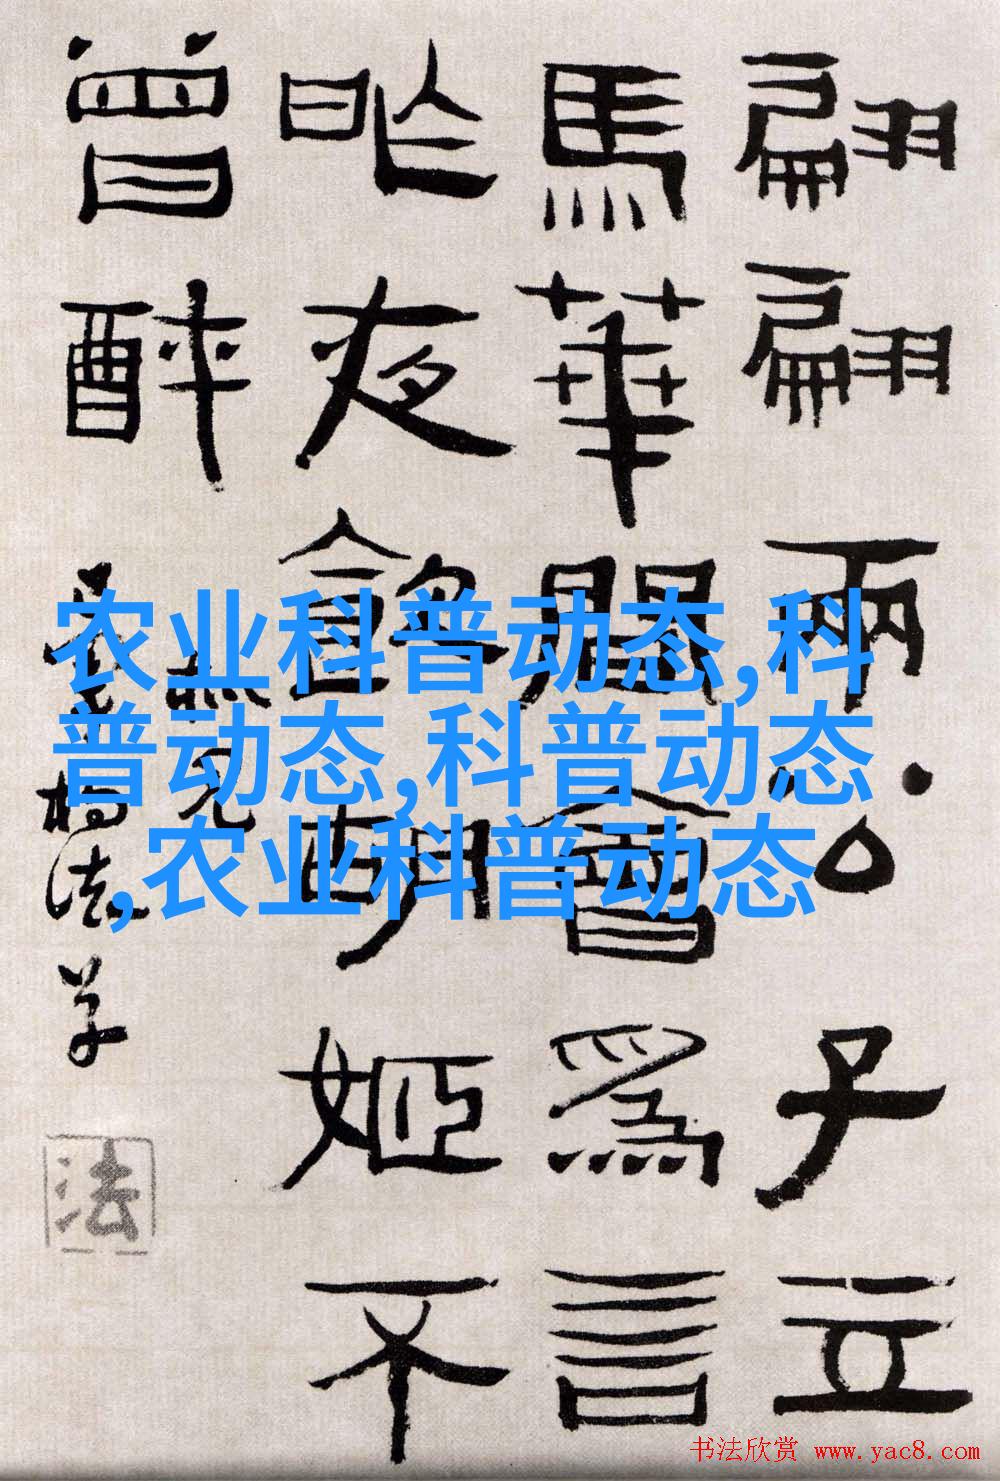 农业科普动态,科
普动态,科普动态
,农业科普动态
翩翩兩子立
馬華會爲言
昨夜胡姬不
曾醉
兄
楊法草
法
书法欣赏 www.yac8.com